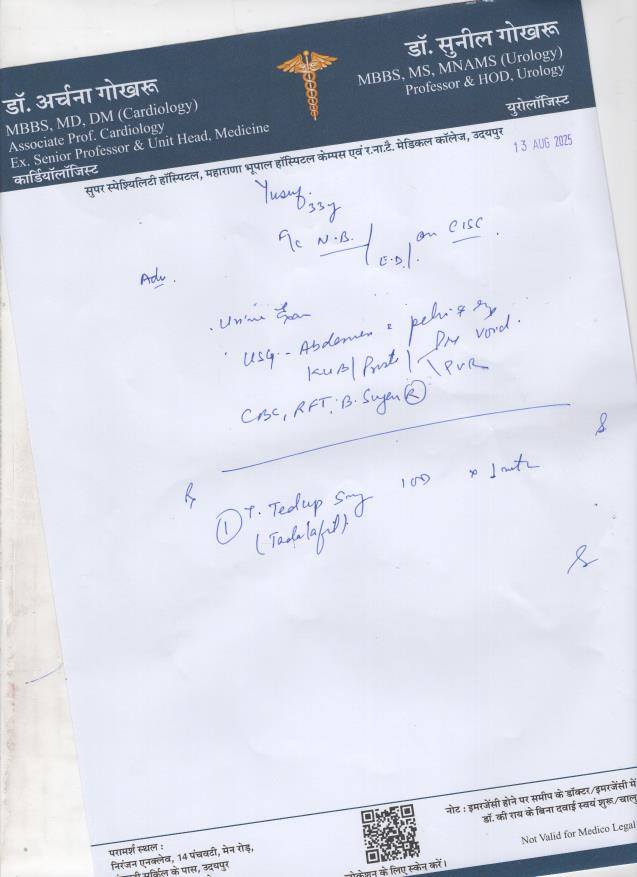 डॉ. अर्चना गोखरू
MBBS, MD, DM (Cardiology)
Associate Prof. Cardiology
Ex. Senior Professor & Unit Head, Medicine
कार्डियॉलॉजिस्ट
डॉ. सुनील गोखरू
MBBS, MS, MNAMS (Urology)
Professor & HOD, Urology
युरोलॉजिस्ट
सुपर स्पेश्यिलिटी हॉस्पिटल, महाराणा भूपाल हॉस्पिटल केम्पस एवं र.ना.टै. मेडिकल कॉलेज, उदयपुर
13 AUG 2025
Yusuf
33y
N.B. / E.D. on CISC.
Adv.
Urine
USG - Abdomen
KUB / / Pre void
PVR
CBC, RFT, B. Sugar R
Rx
① T. Tedup 5mg 1OD x 1
(Tadalafil)
परामर्श स्थल :
निरंजन एनक्लेव, 14 पंचवटी, मेन रोड़,
सर्किल के पास, उदयपुर
लोकेशन के लिए स्केन करें।
नोट : इमरजेंसी होने पर समीप के डॉक्टर/इमरजेंसी में
डॉ. की राय के बिना दवाई स्वयं शुरू/चालु
Not Valid for Medico Legal